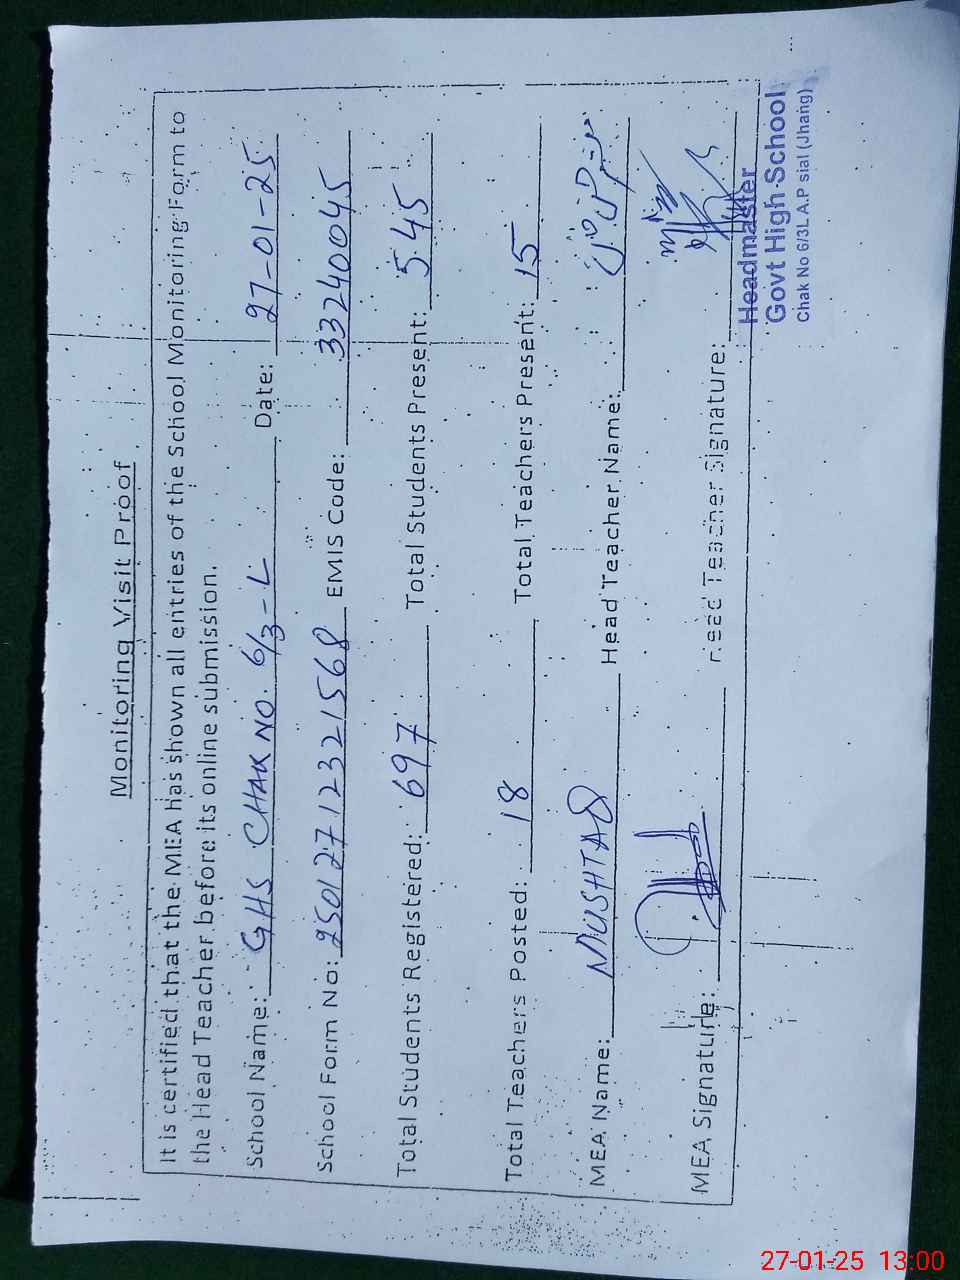 Monitoring Visit Proof
It is certified that the MEA has shown all entries of the School Monitoring Form to
the Head Teacher before its online submission.
School Name: GHS CHAK NO. 6/3-L Date: 27-01-25
School Form No: 25012712321568 EMIS Code: 33240045
Total Students Registered: 697 Total Students Present: 545
Total Teachers Posted: 18 Total Teachers Present: 15
MEA Name: MUSHTAQ Head Teacher Name:
MEA Signature: Head Teacher Signature:
Headmaster
Govt High School
Chak No 6/3L A.P sial (Jhang)
27-01-25 13:00